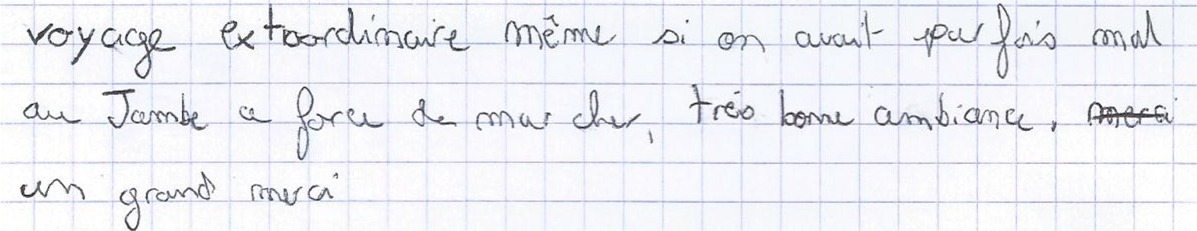 voyage extoordinaire même si on avait par fois mal
au Jambe a force de marcher, très bonne ambiance, merci
un grand merci